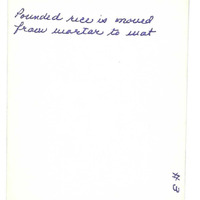 Pounded rice is moved
from mortar to mat
#3